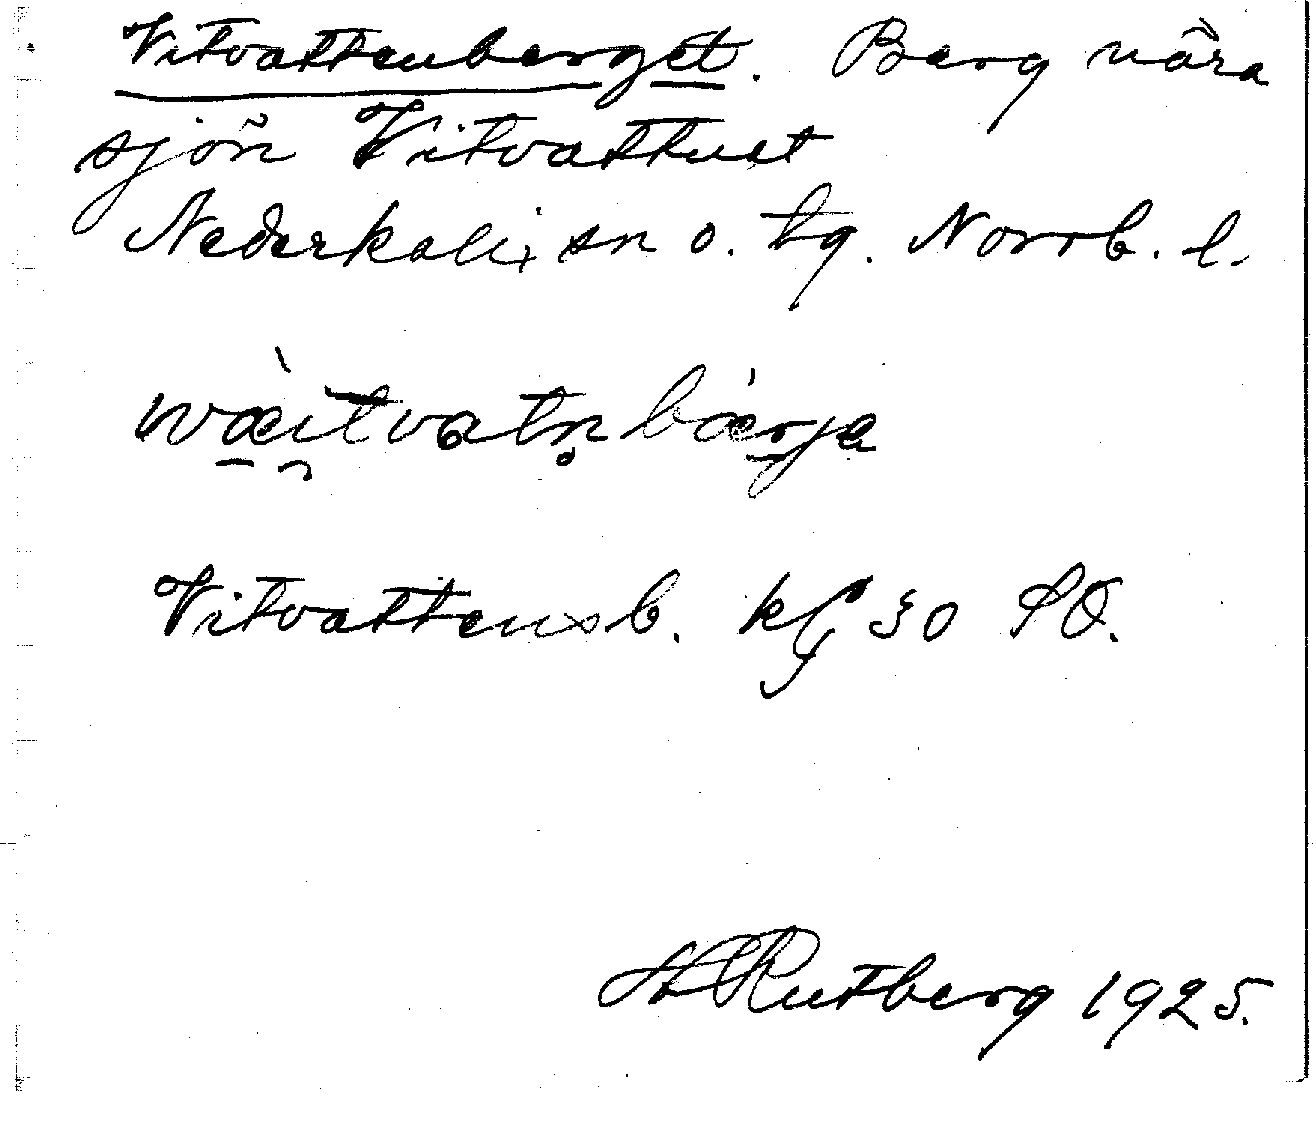 Vitvattenberget. Berg nära
sjön Vitvattnet
Nederkalix sn o. tg. Norrb. l.
wæi̯tvatn̥bærja
Vitvattensb. kfg 30 SO.
H Rutberg 1925.